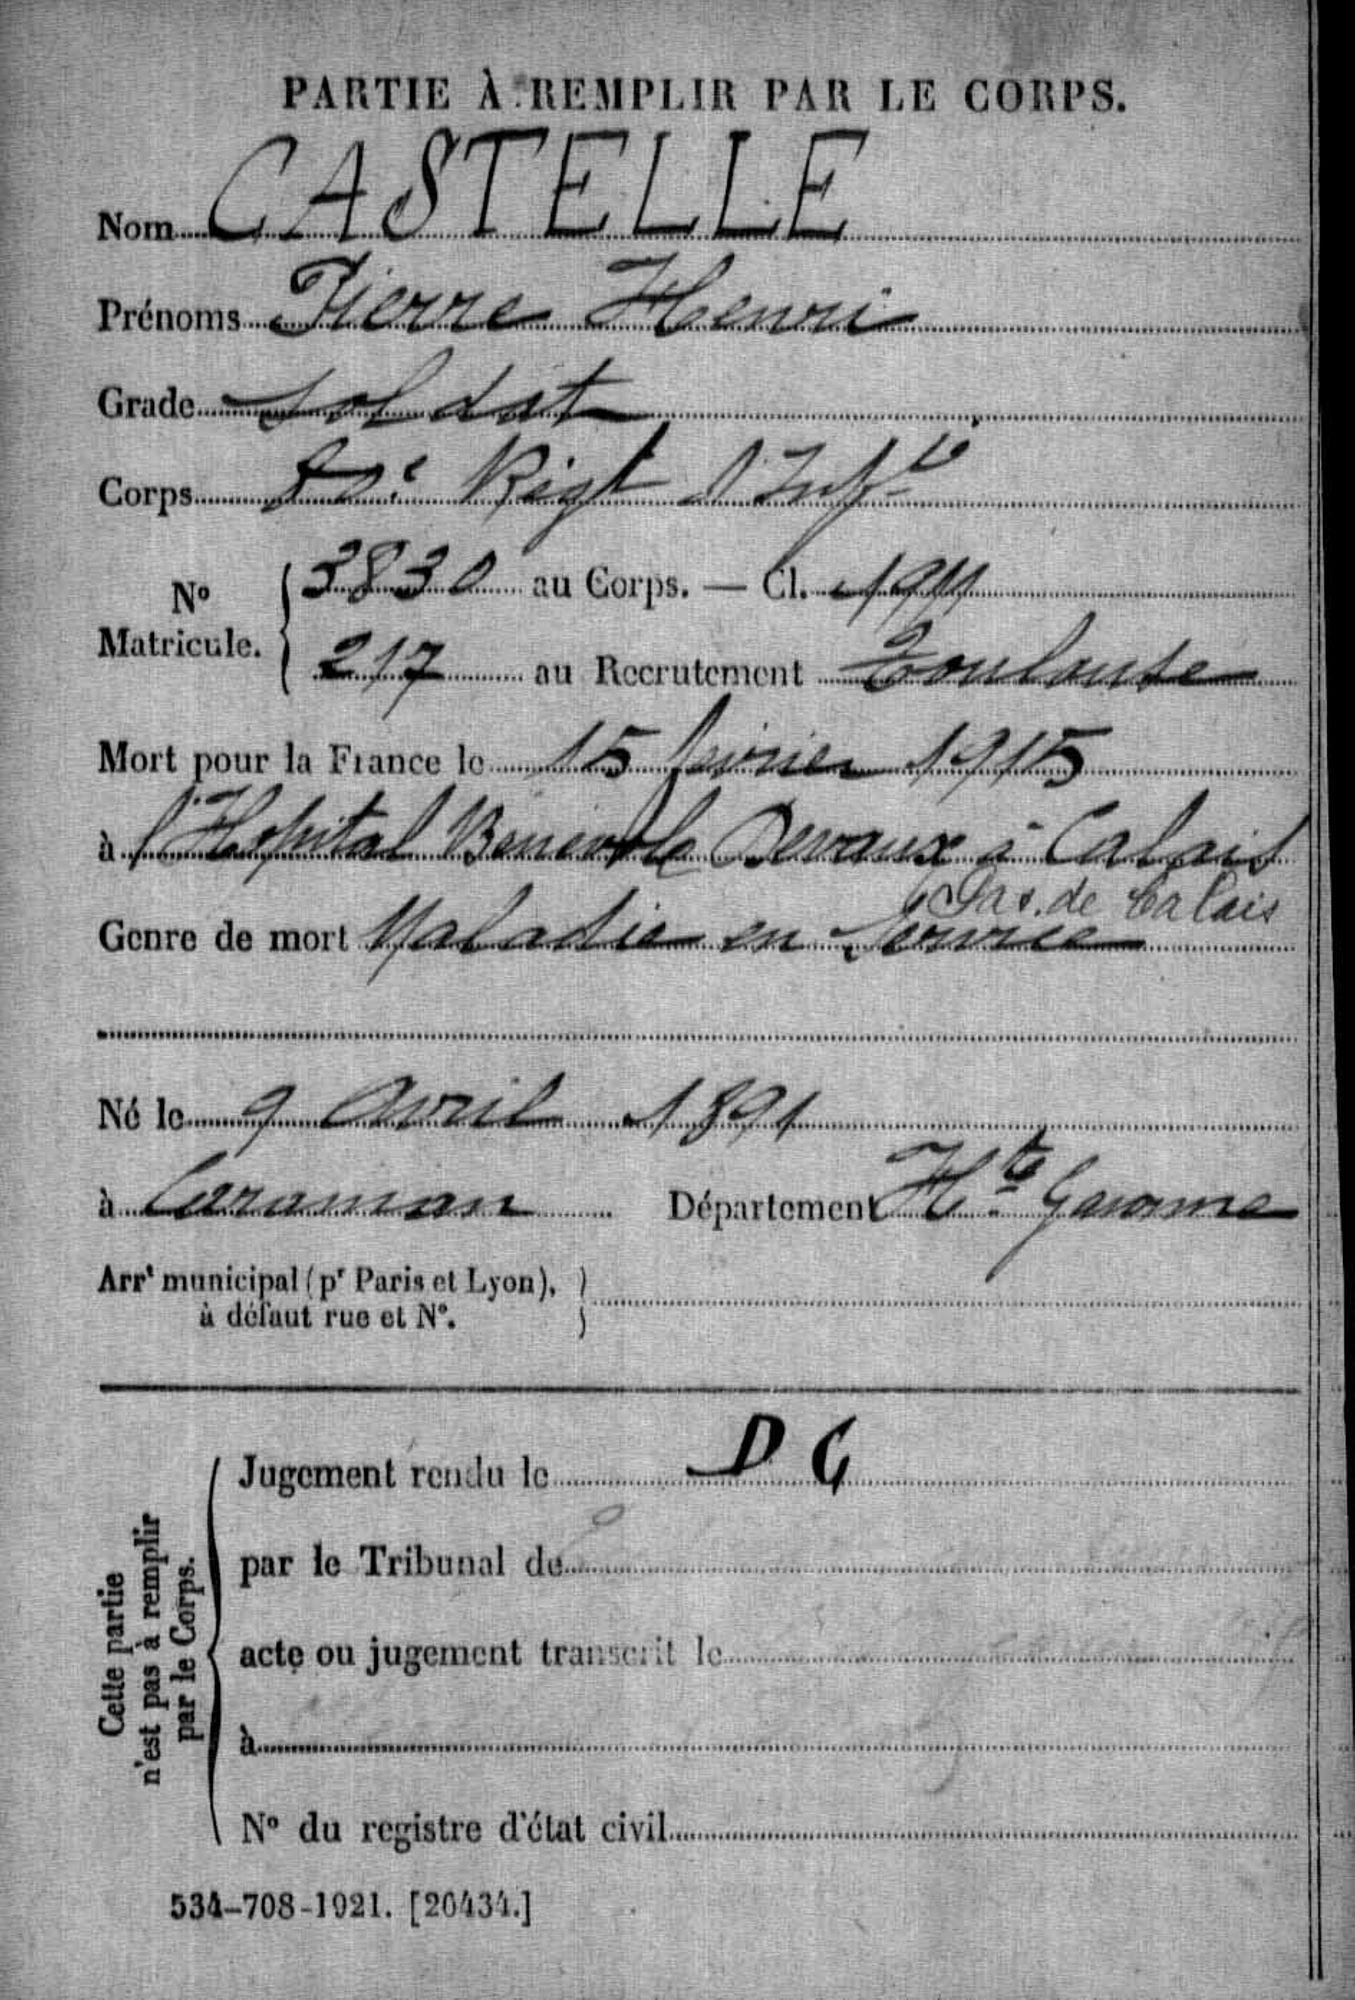 PARTIE À REMPLIR PAR LE CORPS.
Nom CASTELLE
Prénoms Pierre Henri
Grade Soldat
Corps Régt d'Infie
No Matricule. { 3830 au Corps. — Cl. 1911
217 au Recrutement Toulouse
Mort pour la France le 15 février 1915
à l'Hopital Benevole Devaux à Calais
Pas. de Calais
Genre de mort Maladie en Service
Né le 9 Avril 1891
à Caraman Département Hte Garonne
Arrt municipal (pr Paris et Lyon), }
à défaut rue et N°.
Cette partie
n'est pas à remplir
par le Corps.
Jugement rendu le D G
par le Tribunal de
acte ou jugement transcrit le
à
N° du registre d'état civil
534-708-1921. [26434.]